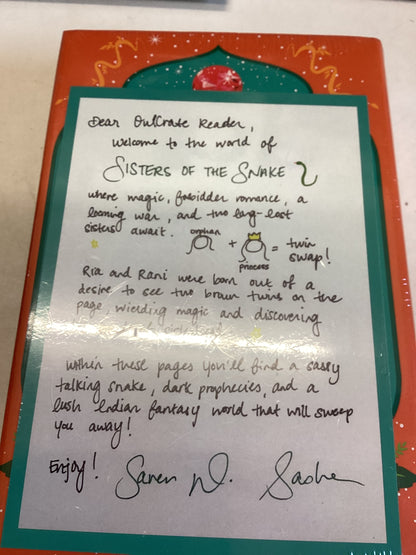 Dear OwlCrate Reader,
Welcome to the world of
SISTERS OF THE SNAKE
where magic, forbidden romance, a
looming war, and two long-lost
sisters await.
orphan
+
princess
= twin
swap!
Ria and Rani were born out of a
desire to see two brown twins on the
page, wielding magic and discovering
within these pages you'll find a sassy
talking snake, dark prophecies, and a
lush Indian fantasy world that will sweep
you away!
Enjoy!
Saren N. Sasha